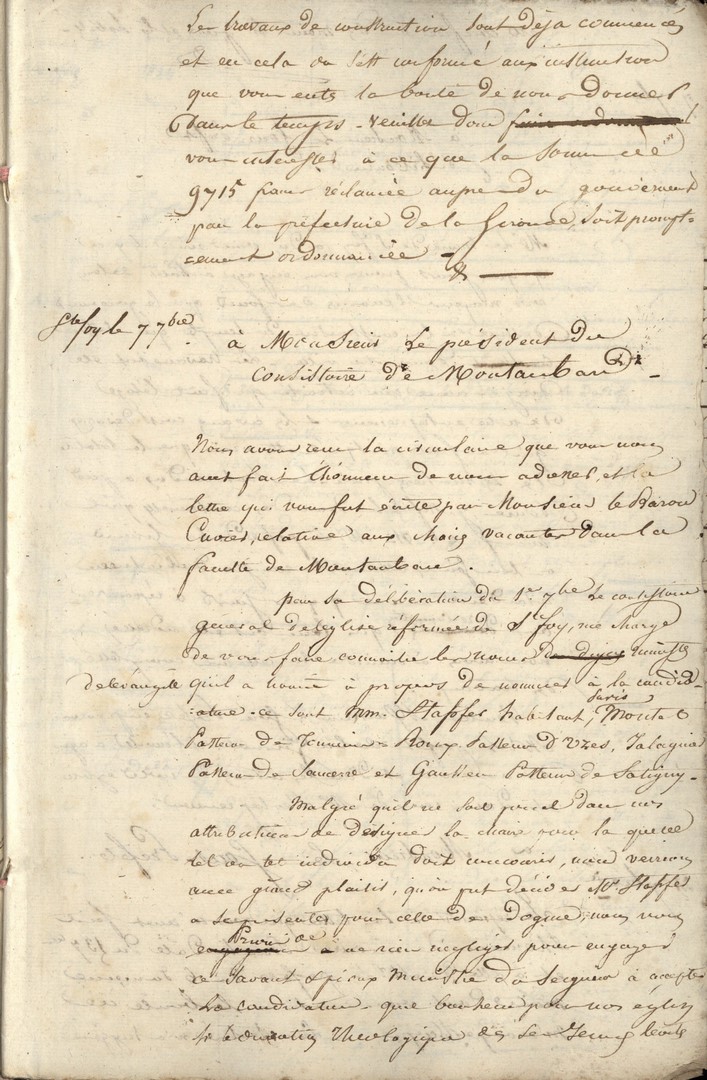 Les travaux de construction sont déja commencés
et en cela on s'est conformé aux instructions
que vous eutes la bonté de nous donner
dans le temps - veuillez donc
vous interesser à ce que la somme de
9715 francs réclamée aupres du gouvernement
par la préfecture de la Gironde, soit prompt-
-ement ordonnancée -
Ste foy le 7 7bre
à Monsieur Le président du
Consistoire de Montauban
Nous avons reçu la circulaire que vous nous
avez fait l'honneur de nous adresser, et la
lettre qui vous fut écrite par Monsieur le Baron
Cuvier, relative aux chaires vacantes dans la
faculté de Montauban.
par sa délibération du 1er 7bre le consistoire
général de l'église réformée de Ste foy, me charge
de vous faire connaitre les noms de ministres
de l'évangile qu'il a à propos de nommer à la candid-
-ature - ce sont MM. Stapfer habitant Paris, Monta
Pasteur de Roux Pasteur d'Uzès, Jalaguier
Pasteur de Sancerre et Gaussen Pasteur de Satigny -
Malgré qu'il ne soit point dans nos
attributions de désigner la chaire pour la quelle
tel ou tel individu doit concourir, nous verrions
avec grand plaisir, qu'on put décider Mr Stapfer
a se presenter pour celle de Dogme, nous vous
prions de ne rien negliger pour engager
ce savant & pieux ministre du Seigneur à accepter
la candidature. que bonheur pour nos églises
si l'éducation théologique des